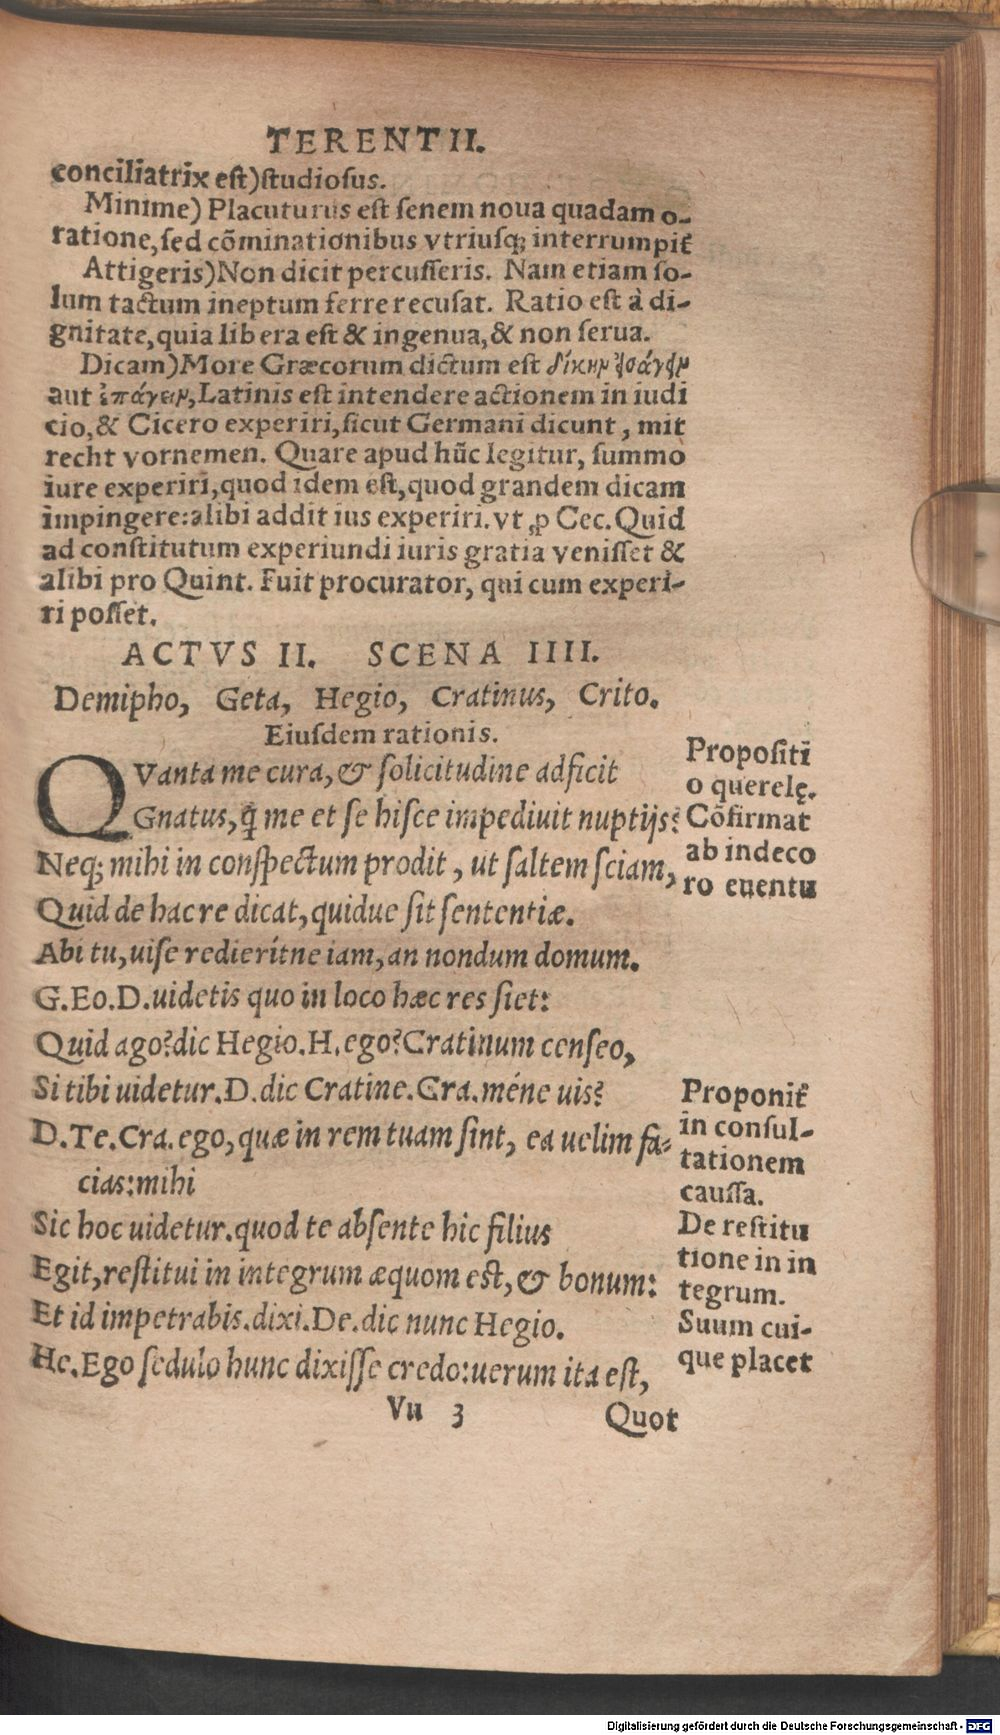 TERENTII.
conciliatrix est)studiosus.
Minime) Placuturus est senem noua quadam o-
ratione, sed cõminationibus vtriusq; interrumpit̃
Attigeris)Non dicit percusseris. Nam etiam so-
lum tactum ineptum ferre recusat. Ratio est à di-
gnitate, quia libera est & ingenua, & non serua.
Dicam)More Græcorum dictum est δίκην εἰσάγειν
aut ἐπάγειν, Latinis est intendere actionem in iudi
cio, & Cicero experiri, sicut Germani dicunt, mit
recht vornemen. Quare apud hũc legitur, summo
iure experiri, quod idem est, quod grandem dicam
impingere: alibi addit ius experiri. vt ꝓ Cec. Quid
ad constitutum experiundi iuris gratia venisset &
alibi pro Quint. Fuit procurator, qui cum experi-
ri posset.
ACTVS II. SCENA IIII.
Demipho, Geta, Hegio, Cratinus, Crito.
Eiusdem rationis.
QVanta me cura, & solicitudine adficit
Gnatus, q̃ me et se hisce impediuit nuptijs?
Neq; mihi in conspectum prodit, ut saltem sciam,
Quid de hac re dicat, quidue sit sententiæ.
Abi tu, uise redierítne iam, an nondum domum.
G. Eo. D. uidetis quo in loco hæc res siet:
Quid ago? dic Hegio. H. ego? Cratinum censeo,
Si tibi uidetur. D. dic Cratine. Cra. méne uis?
D. Te. Cra. ego, quæ in rem tuam sint, ea uelim fa-
cias: mihi
Sic hoc uidetur. quod te absente hic filius
Egit, restitui in integrum æquom est, & bonum:
Et id impetrabis. dixi. De. dic nunc Hegio.
He. Ego sedulo hunc dixisse credo: uerum ita est,
Vu 3 Quot
Propositi
o querelę.
Cõfirmat
ab indeco
ro euentu
Proponit̃
in consul-
tationem
caussa.
De restitu
tione in in
tegrum.
Suum cui-
que placet
Digitalisierung gefördert durch die Deutsche Forschungsgemeinschaft - DFG